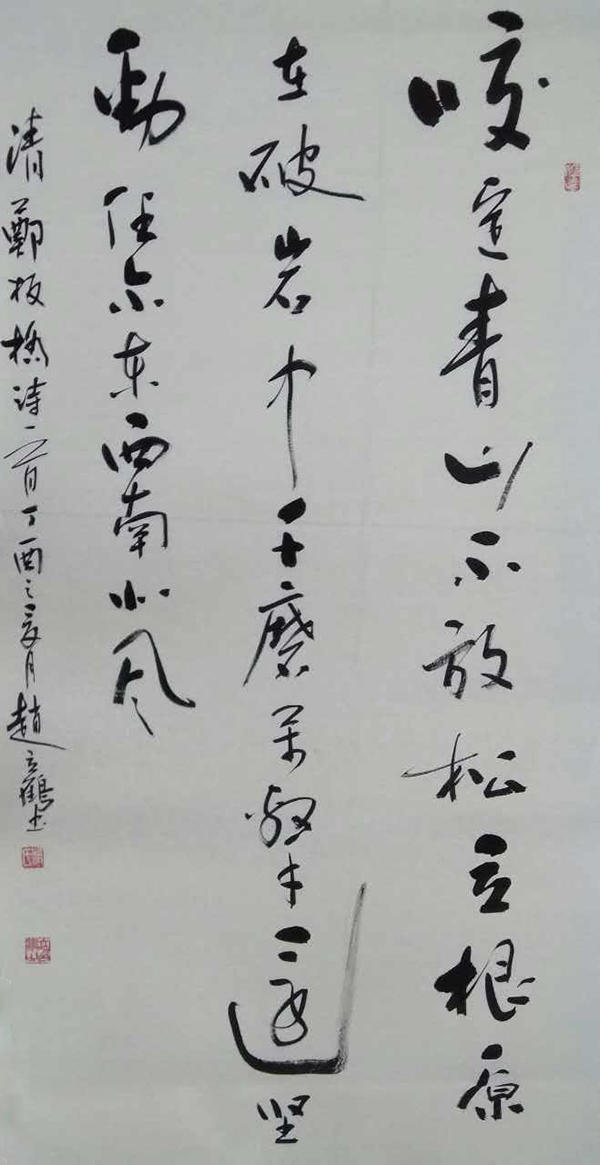 咬定青山不放松立根原
在破岩中千磨萬擊還坚
勁任尔东西南北风
清鄭板橋诗一首丁酉之夏月趙立鶴书